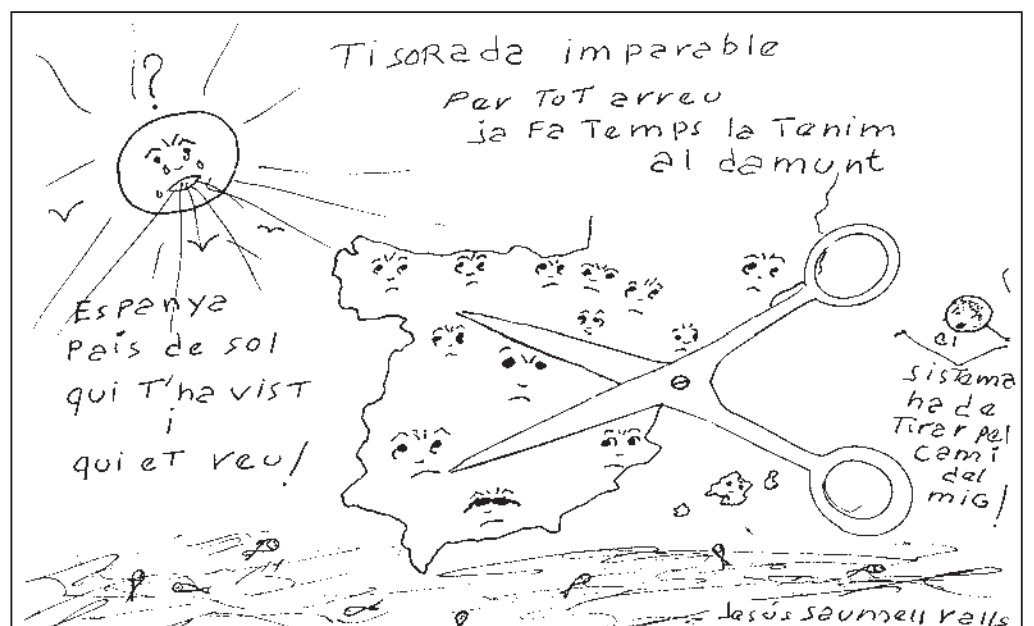 !?
Tisorada imparable
Per Tot arreu
ja Fa Temps la Tenim
al damunt
Espanya
país de sol
qui T'ha visT
i
qui eT veu!
el
sistema
ha de
Tirar pel
camí
del
mig!
Jesús Saumell Valls